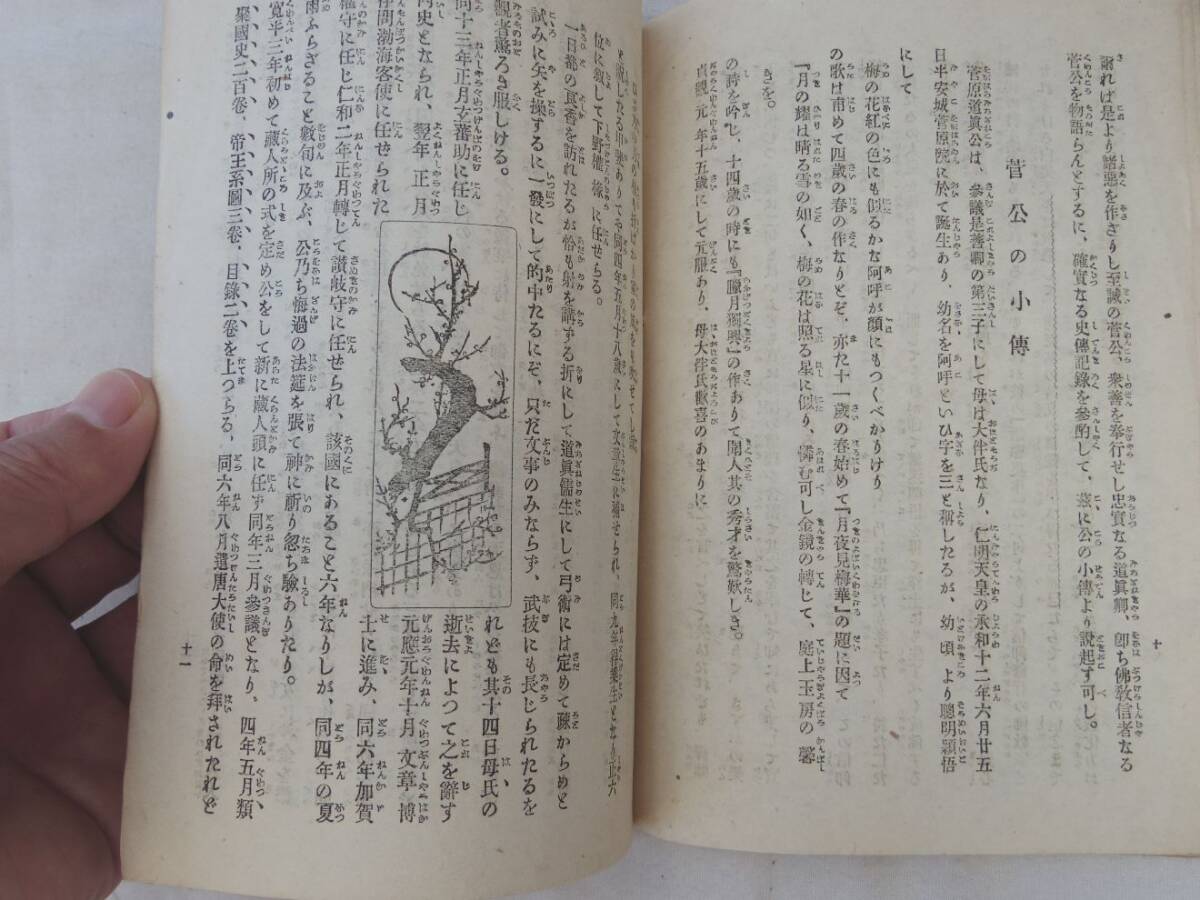 謝れば是より諸惡を作ざりし至誠の菅公、衆善を奉行せし忠實なる道眞卿、卽ち佛敎信者なる
菅公を物語らんとするに、確實なる史傳記錄を參酌して、茲に公の小傳より說起す可し。
菅公の小傳
菅原道眞公は、參議是善卿の第三子にして母は大伴氏なり、仁明天皇の承和十二年六月廿五
日平安城菅原院に於て誕生あり、幼名を阿呼といひ字を三と稱したるが、幼頃より聰明穎悟
にして
梅の花紅の色にも似るかな阿呼が顔にもつくべかりけり
の歌は甫めて四歲の春の作なりとぞ、亦た十一歲の春始めて『月夜見梅華』の題に因て
『月の耀は晴る雪の如く、梅の花は照る星に似り、憐む可し金鏡の轉じて、庭上玉房の馨
きを。
の詩を吟じ、十四歲の時にも『臘月獨興』の作ありて聞人其の秀才を驚歎しき。
貞觀元年十五歲にして元服あり、母大伴氏歡喜のあまりに
十
位に敍して下野權掾に任せらる。
一日都の良香を訪れたるが恰も射を講ずる折にして道眞儒生にして弓術には定めて疎からめと
試みに矢を操するに一發にして的中たるにぞ、只だ文事のみならず、武技にも長じられたるを
觀者驚ろき服しける。
れども其十四日母氏の
同十三年正月玄蕃助に任じ
逝去によつて之を辭す
內史となられ、翌年正月
元應元年十月文章博
存問渤海客使に任せられた
士に進み、同六年加賀
權守に任じ仁和二年正月轉じて讃岐守に任せられ、該國にあること六年なりしが、同四年の夏
雨ふらざること數旬に及ぶ、公乃ち悔過の法筵を張て神に祈り忽ち驗ありたり。
寬平三年初めて藏人所の式を定め公をして新に藏人頭に任ず同年三月參議となり。四年五月類
聚國史二百卷、帝王系圖三卷、目錄二卷を上つらる、同六年八月遣唐大使の命を拜されたれど
十一